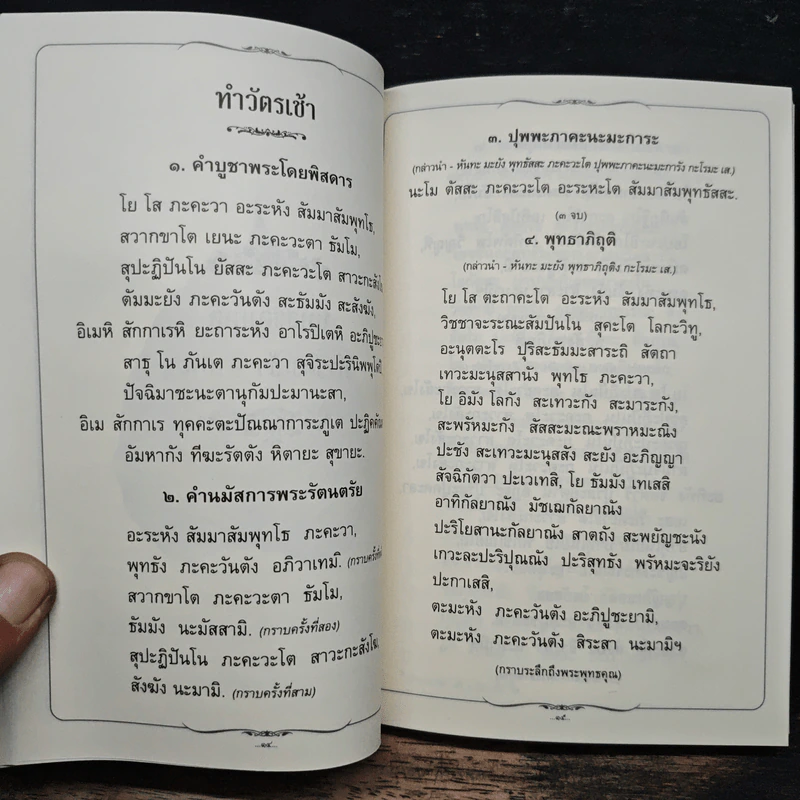 ทำวัตรเช้า
๑. คำบูชาพระโดยพิสดาร
โย โส ภะคะวา อะระหัง สัมมาสัมพุทโธ,
สวากขาโต เยนะ ภะคะวะตา ธัมโม,
สุปะฏิปันโน ยัสสะ ภะคะวะโต
ตัมมะยัง ภะคะวันตัง สะธัมมัง สะสังฆัง,
อิเมหิ สักกาเรหิ ยะถาระหัง อาโรปิเตหิ
สาธุ โน ภันเต ภะคะวา
ปัจฉิมาชะนะตานุกัมปะมานะสา,
อิเม สักกาเร ทุคคะตะปัณณาการะภูเต
อัมหากัง ทีฆะรัตตัง หิตายะ สุขายะ.
๒. คำนมัสการพระรัตนตรัย
อะระหัง สัมมาสัมพุทโธ ภะคะวา,
พุทธัง ภะคะวันตัง อภิวาเทมิ.
สวากขาโต ภะคะวะตา ธัมโม,
ธัมมัง นะมัสสามิ. (กราบครั้งที่สอง)
สุปะฏิปันโน ภะคะวะโต สาวะกะสังโฆ,
สังฆัง นะมามิ. (กราบครั้งที่สาม)
๓. ปุพพะภาคะนะมะการะ
(กล่าวนำ - หันทะ มะยัง พุทธัสสะ ภะคะวะโต ปุพพะภาคะนะมะการัง กะโรมะ เส.)
นะโม ตัสสะ ภะคะวะโต อะระหะโต สัมมาสัมพุทธัสสะ.
(๓ จบ)
๔. พุทธาภิถุติ
(กล่าวนำ - หันทะ มะยัง พุทธาภิถุติง กะโรมะ เส.)
โย โส ตะถาคะโต อะระหัง สัมมาสัมพุทโธ,
วิชชาจะระณะสัมปันโน สุคะโต โลกะวิทู,
อะนุตตะโร ปุริสะธัมมะสาระถิ สัตถา
เทวะมะนุสสานัง พุทโธ ภะคะวา,
โย อิมัง โลกัง สะเทวะกัง สะมาระกัง,
สะพรัหมะกัง สัสสะมะณะพราหมะณิง
ปะชัง สะเทวะมะนุสสัง สะยัง อะภิญญา
สัจฉิกัตวา ปะเวเทสิ, โย ธัมมัง เทเสสิ
อาทิกัลยาณัง มัชเฌกัลยาณัง
ปะริโยสานะกัลยาณัง สาตถัง สะพยัญชะนัง
เกวะละปะริปุณณัง ปะริสุทธัง พรัหมะจะริยัง
ปะกาเสสิ,
ตะมะหัง ภะคะวันตัง อะภิปูชะยามิ,
ตะมะหัง ภะคะวันตัง สิระสา นะมามิฯ
(กราบระลึกถึงพระพุทธคุณ)
๑๔
๑๕